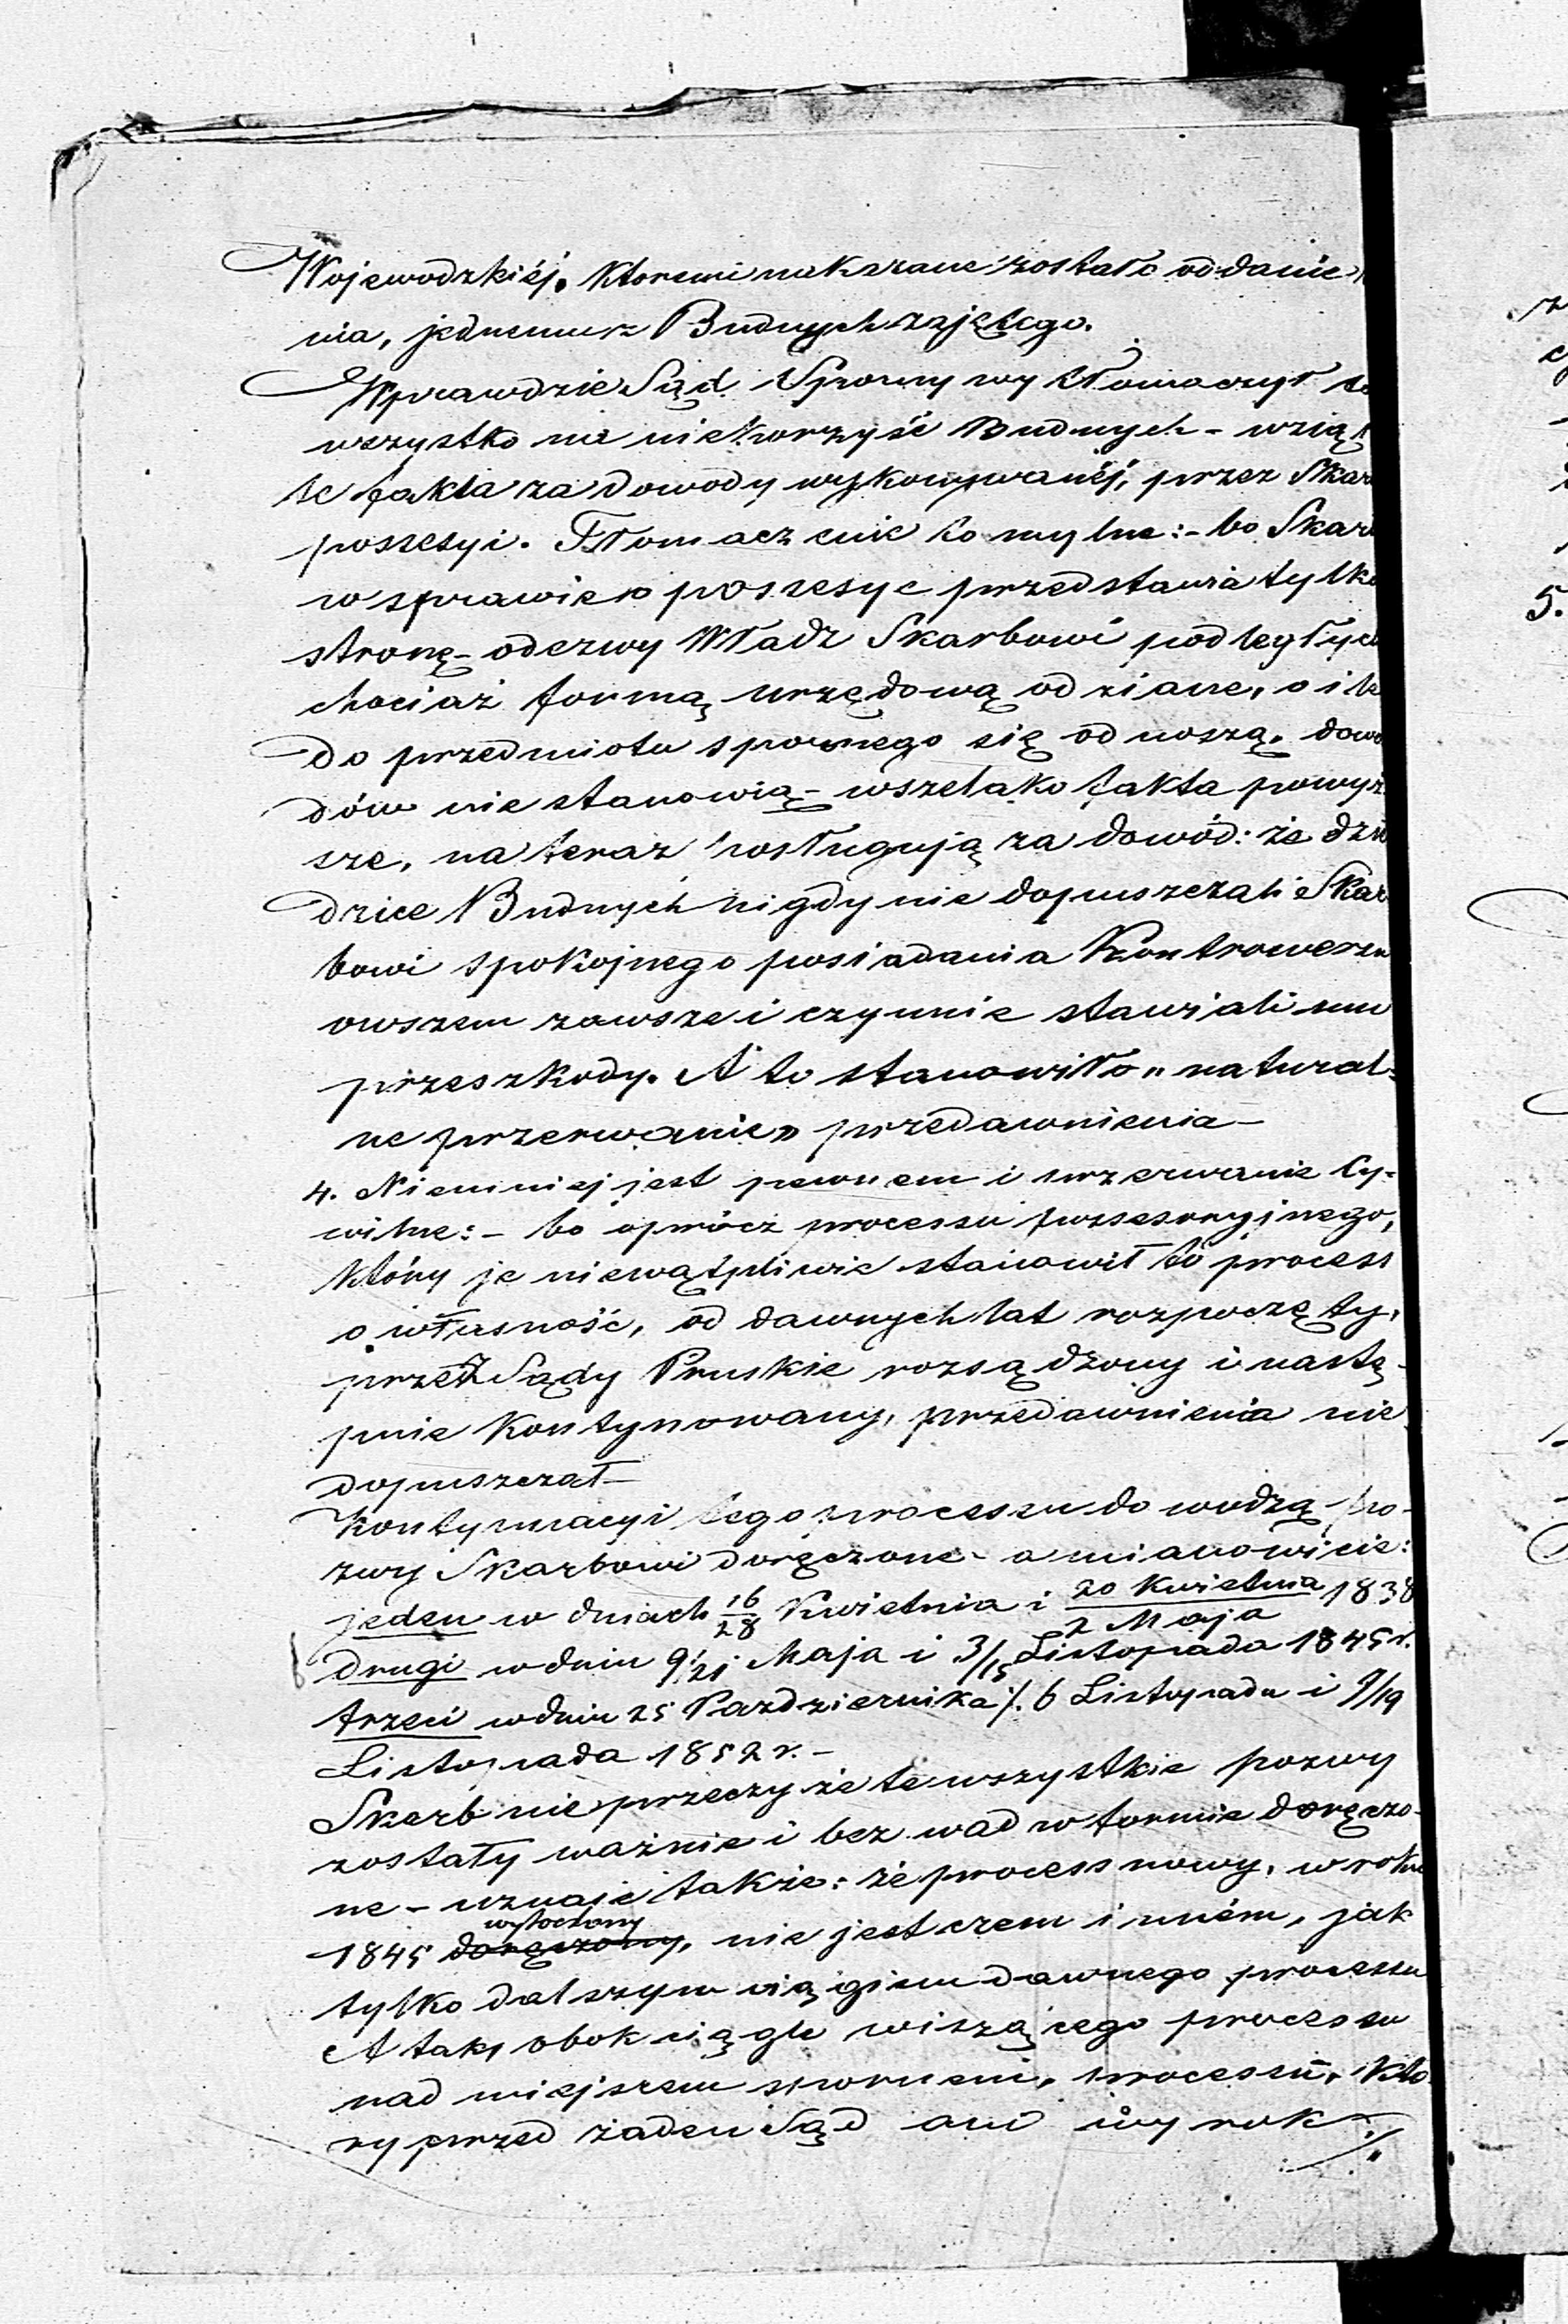 Wojewodzkiéj. Ktoremi nakazane zostało oddanie
nia, jednemu z Budnych zajętego.
Wprawdzie Sąd Sporny wytłomaczył to
wszystko na niekorzyść Budnych - wziął
te fakta za dowody wykonywanéj, przez Skar
possesyi. Tłomaczenie to mylne: - bo Skar
w sprawie o possesye przedstawia tylko
stronę - odezwy Władz Skarbowi podległych
chociaż formą urzędową odziane, o ile
do przedmiotu spornego się odnoszą, dowo
dów nie stanowią - wszelako fakta powyż
sze, na teraz posługują za dowód: że dzie
dzice Budnych nigdy nie dopuszczali Skar
bowi spokojnego posiadania Kontrowersu
owszem zawsze i czynnie stawiali mu
przeszkody. A to stanowiło „natural-
ne przerwanie" przedawnienia -
4. Niemniej jest pewnem i przerwanie Cy-
wilne: - bo oprócz processu possesoryjnego,
Który je niewątpliwie stanowił to process
o własność, od dawnych lat rozpoczęty,
przez Sądy Pruskie rozsądzony i nastę-
pnie Kontynowany, przedawnienia nie
dopuszczał -
Kontynuacyi tego processu dowodzą po-
zwy Skarbowi doręczone - a mianowicie:
jeden w dniach 16/28 Kwietnia i 20 Kwietnia/2 Maja 1838
drugi w dniu 9/21 Maja i 3/15 Listopada 1845 r.
trzeci w dniu 25 Pazdziernika /. 6 Listopada i 7/19
Listopada 1852 r. -
Skarb nie przeczy że te wszystkie pozwy
zostały ważnie i bez wad w formie doręczo-
ne - uznaje także: że process nowy, w roku
wytoczony
1845 doręczony, nie jest czem inném, jak
tylko dalszym ciągiem dawnego processu
A tak, obok ciągle wiszącego processu
nad miejscem spornem, processu, Któ
ry przed żaden Sąd ani wyrok